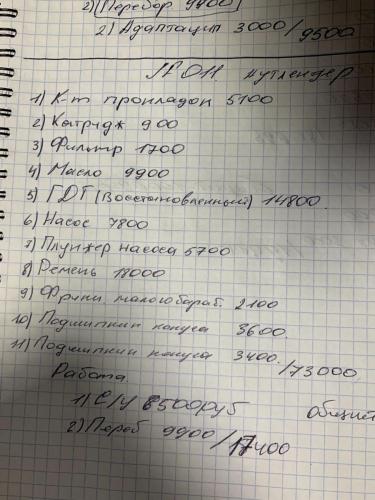 2) Перебор 9900
2) Адаптация 3000/9500
JF011. Аутлендер
1) К-т прокладок 5100
2) Катридж 900
3) Фильтр 1700
4) Масло 9900
5) ГДТ (Восстановленный) 14800.
6) Насос 7800
7) Плунжер насоса 5700
8) Ремень 18000
9) Фрикц малого бараб. 2100
10) Подшипник конуса 3600.
11) Подшипник конуса 3400./73000
Работа.
1) С/У 6500руб Общий
2) Переб 9900/17400